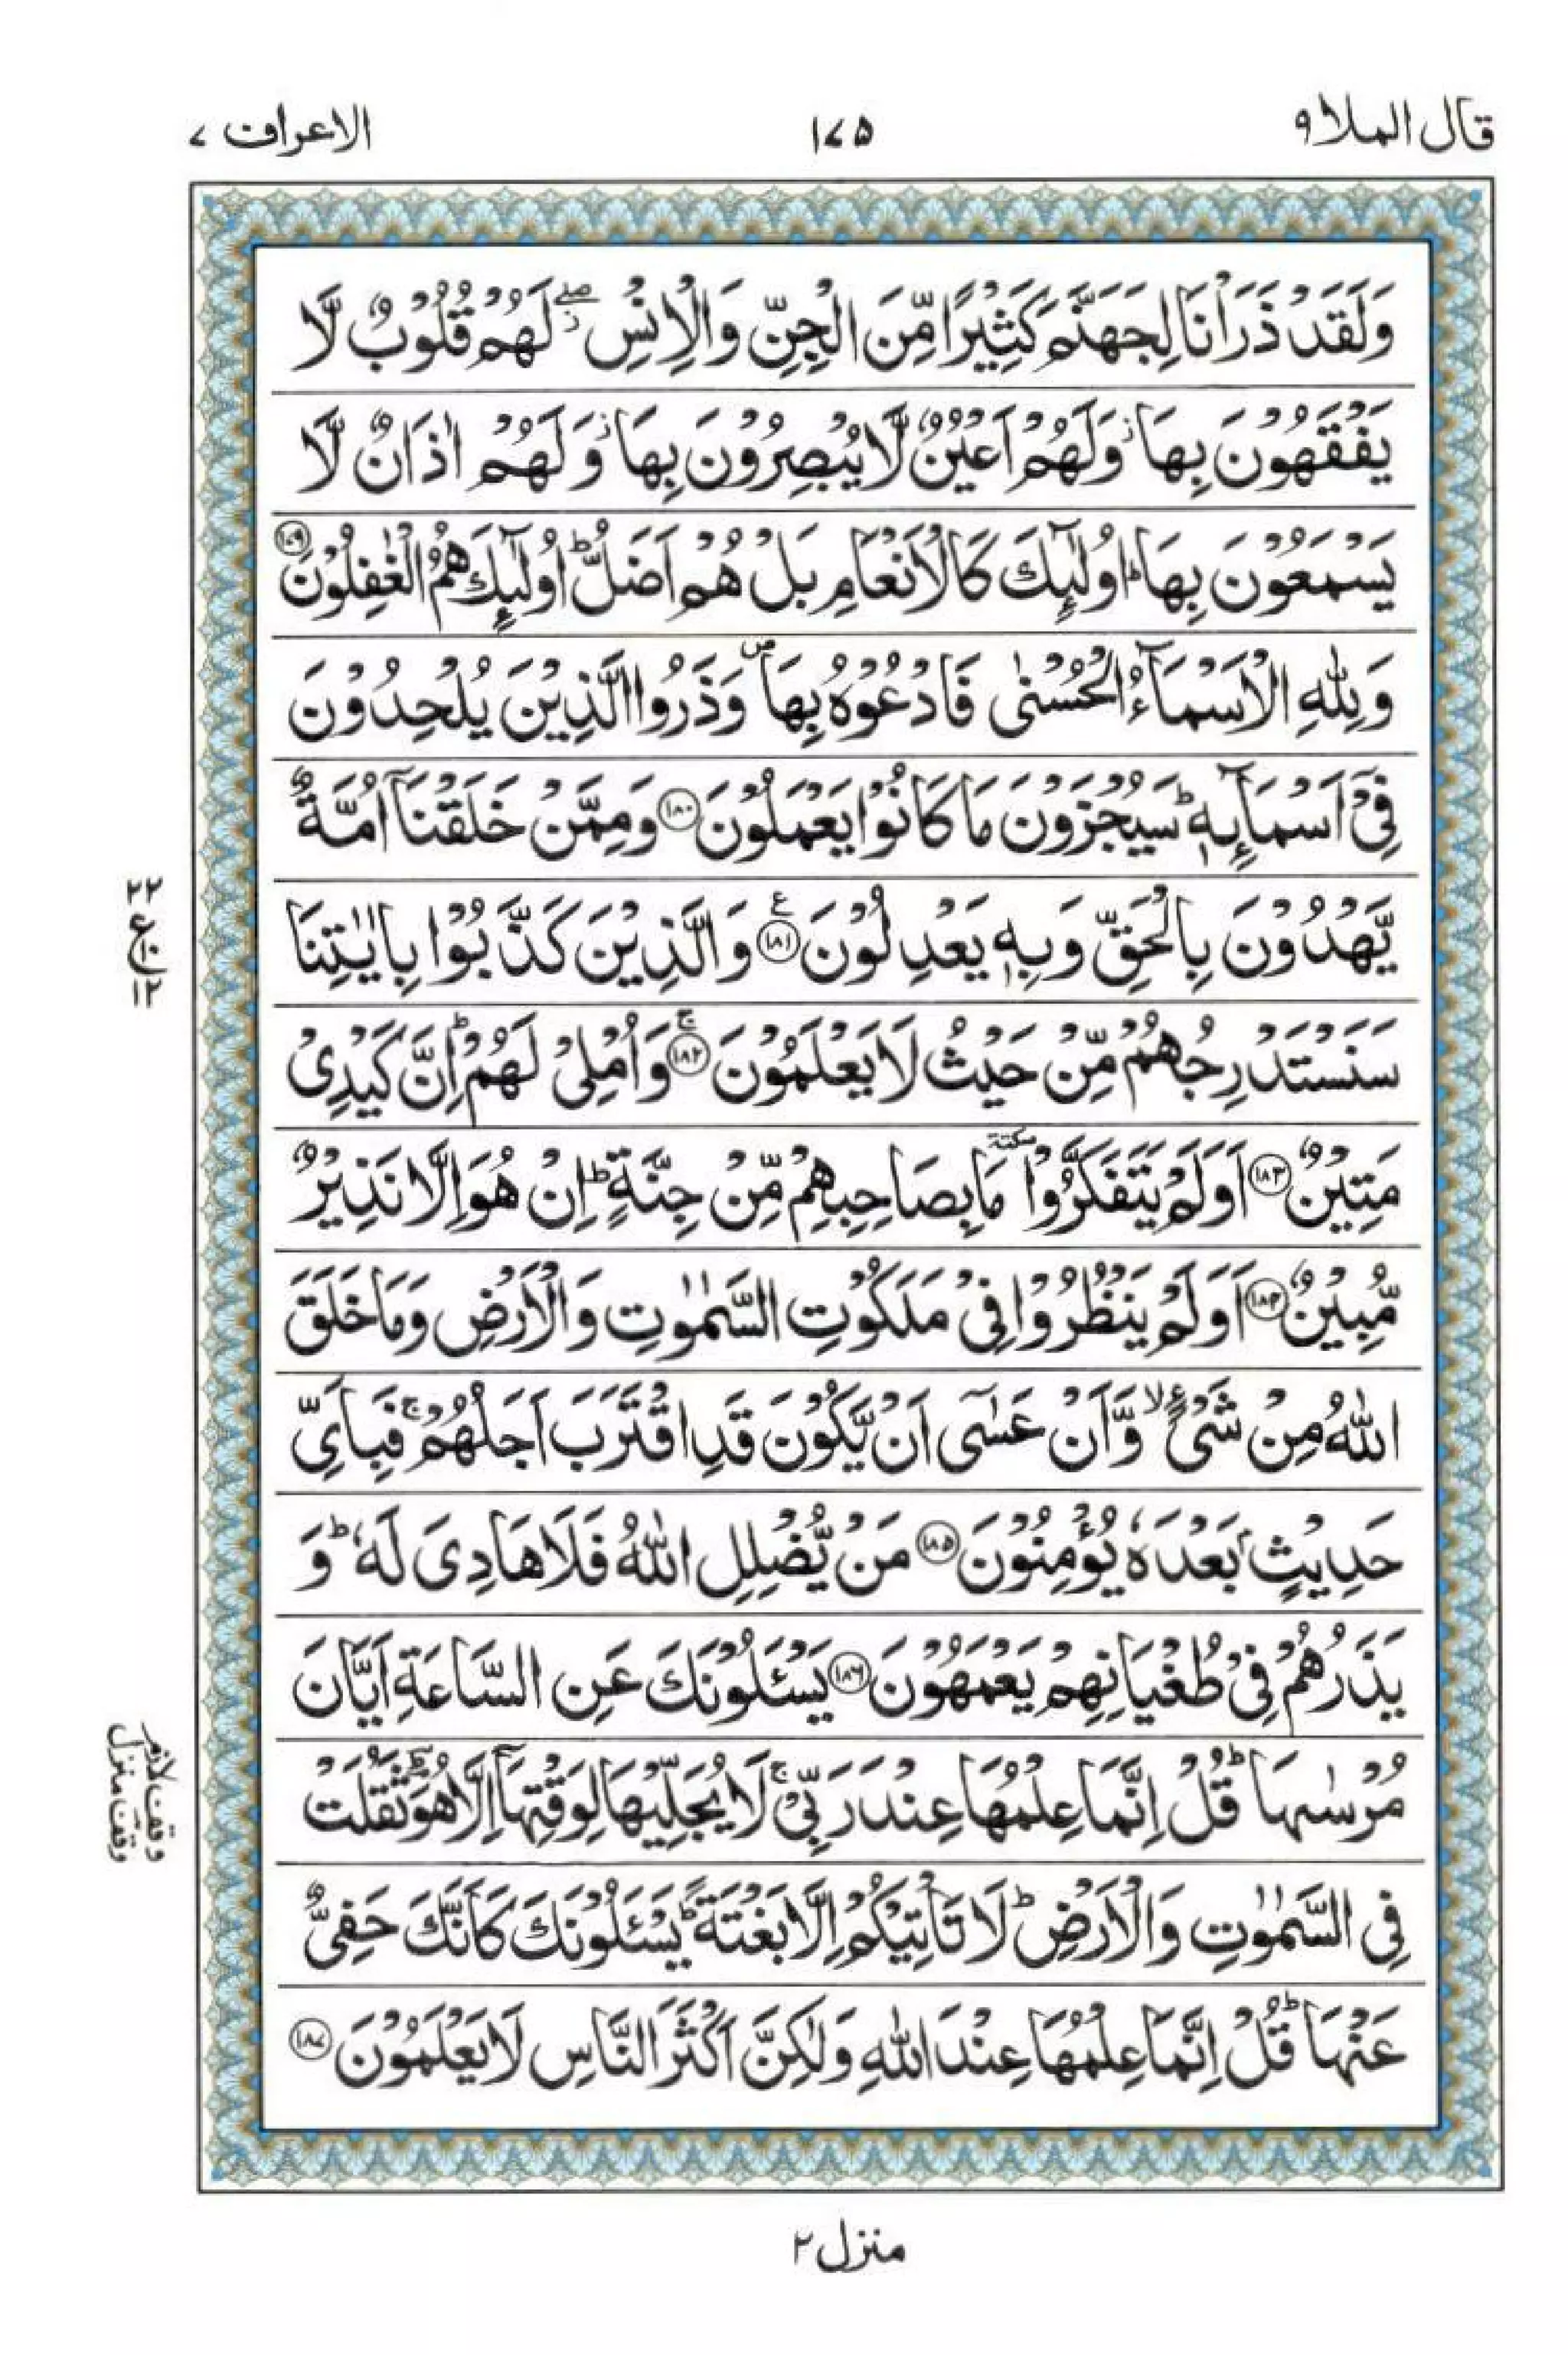 قال الملا ۹
۱۷۵
الاعراف ۷
وَلَقَدْ ذَرَاْنَا لِجَهَنَّمَ كَثِيْرًا مِّنَ الْجِنِّ وَالْاِنْسِ ۖ ز لَهُمْ قُلُوْبٌ لَّا
يَفْقَهُوْنَ بِهَا ز وَلَهُمْ اَعْيُنٌ لَّا يُبْصِرُوْنَ بِهَا ز وَلَهُمْ اٰذَانٌ لَّا
يَسْمَعُوْنَ بِهَا ؕ اُولٰٓئِكَ كَالْاَنْعَامِ بَلْ هُمْ اَضَلُّ ؕ اُولٰٓئِكَ هُمُ الْغٰفِلُوْنَ ۱۷۹
وَلِلّٰهِ الْاَسْمَآءُ الْحُسْنٰى فَادْعُوْهُ بِهَا ص وَذَرُوا الَّذِيْنَ يُلْحِدُوْنَ
فِيْٓ اَسْمَآئِهٖ ؕ سَيُجْزَوْنَ مَا كَانُوْا يَعْمَلُوْنَ ۱۸۰ وَمِمَّنْ خَلَقْنَآ اُمَّةٌ
يَّهْدُوْنَ بِالْحَقِّ وَبِهٖ يَعْدِلُوْنَ ۱۸۱ ع وَالَّذِيْنَ كَذَّبُوْا بِاٰيٰتِنَا
سَنَسْتَدْرِجُهُمْ مِّنْ حَيْثُ لَا يَعْلَمُوْنَ ۱۸۲ ج وَاُمْلِيْ لَهُمْ ؕ اِنَّ كَيْدِيْ
مَتِيْنٌ ۱۸۳ اَوَلَمْ يَتَفَكَّرُوْا سكتة مَا بِصَاحِبِهِمْ مِّنْ جِنَّةٍ ؕ اِنْ هُوَ اِلَّا نَذِيْرٌ
مُّبِيْنٌ ۱۸۴ اَوَلَمْ يَنْظُرُوْا فِيْ مَلَكُوْتِ السَّمٰوٰتِ وَالْاَرْضِ وَمَا خَلَقَ
اللّٰهُ مِنْ شَيْءٍ ۙ وَّاَنْ عَسٰٓى اَنْ يَّكُوْنَ قَدِ اقْتَرَبَ اَجَلُهُمْ ۚ فَبِاَيِّ
حَدِيْثٍۭ بَعْدَهٗ يُؤْمِنُوْنَ ۱۸۵ مَنْ يُّضْلِلِ اللّٰهُ فَلَا هَادِيَ لَهٗ ؕ وَ
يَذَرُهُمْ فِيْ طُغْيَانِهِمْ يَعْمَهُوْنَ ۱۸۶ يَسْـَٔلُوْنَكَ عَنِ السَّاعَةِ اَيَّانَ
مُرْسٰىهَا ؕ قُلْ اِنَّمَا عِلْمُهَا عِنْدَ رَبِّيْ ۚ لَا يُجَلِّيْهَا لِوَقْتِهَآ اِلَّا هُوَ ؕ ثَقُلَتْ
فِي السَّمٰوٰتِ وَالْاَرْضِ ؕ لَا تَاْتِيْكُمْ اِلَّا بَغْتَةً ؕ يَسْـَٔلُوْنَكَ كَاَنَّكَ حَفِيٌّ
عَنْهَا ؕ قُلْ اِنَّمَا عِلْمُهَا عِنْدَ اللّٰهِ وَلٰكِنَّ اَكْثَرَ النَّاسِ لَا يَعْلَمُوْنَ ۱۸۷
۲۲
ع
۱۲
وقف لازم
وقف منزل
منزل ۲